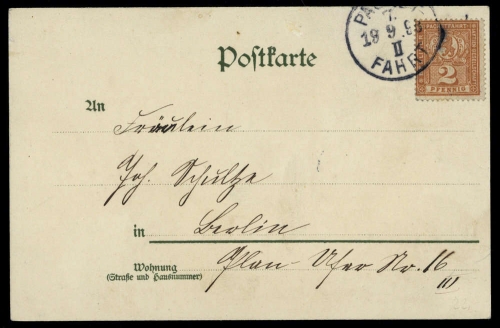 PACKET
7.
19 9.98
II
FAHRT
PACKETFAHRT
2
PFENNIG
Postkarte
An
Fräulein
Joh. Schultze
in Berlin
Wohnung
(Straße und Hausnummer)
Plan-Ufer Nr. 16
III